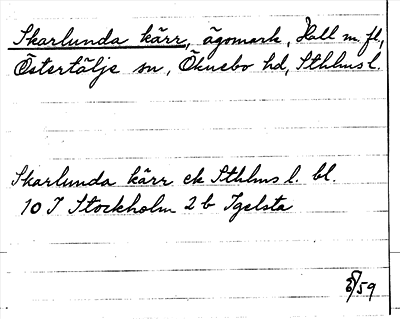 Skarlunda kärr, ägomark, Hall m.fl,
Östertälje sn, Öknebo hd, Sthlms l.
Skarlunda kärr ek Sthlms l. bl.
10 I Stockholm 2 b Igelsta
/59